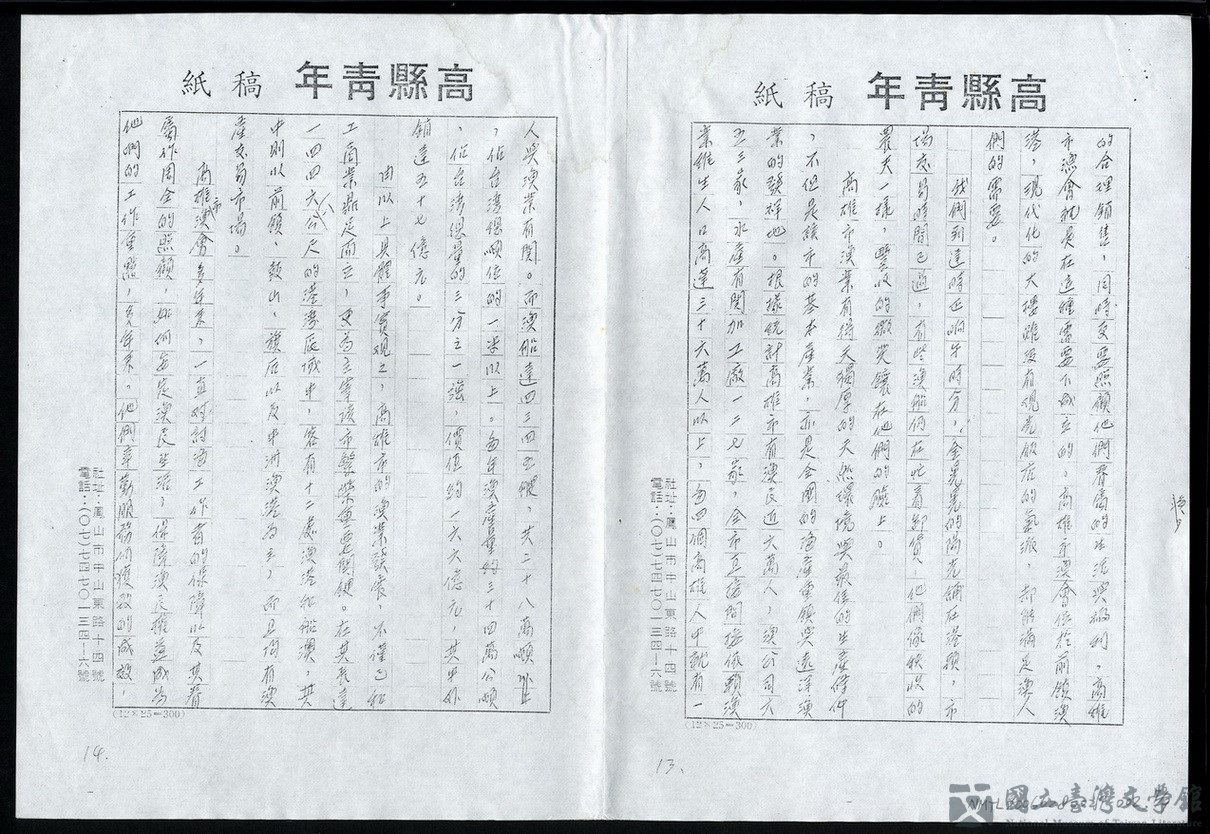 高縣青年 稿紙
的合理銷售，同時更要照顧他們眷屬的生活與福利，高雄
市漁會就是在這種需要下成立的。高雄市漁會位於前鎮漁
港，現代化的大樓雖沒有觀光飯店的氣派，卻能滿足漁人
們的需要。
我們到達時正晌午時分，金晃晃的陽光鋪在港頭，市
場交易時間已過，有些漁船仍在忙著卸貨，他們像秋收的
農夫一樣，豐收的微笑鑲在他們的臉上。
高雄市漁業有得天獨厚的天然環境與最佳的生產條件
，不但是該市的基本產業，亦是全國的漁產重鎮與遠洋漁
業的發祥地。根據統計高雄市有漁民近六萬人，漁公司六
五三家，水產有關加工廠一二七家，全市直接間接依賴漁
業維生人口高達三十六萬人以上，每四個高雄人中就有一
社址：鳳山市中山東路十四號
電話：(〇七)七四七〇一三四—六號
(12×25=300)
13.
高縣青年 稿紙
人與漁業有關。而漁船達四三四五艘，共二十八萬噸以上
，佔台灣總噸位的一半以上。每年漁產量約三十四萬公噸
，佔台灣總量的三分之一強，價值約一六六億元，其中外
銷達五十七億元。
由以上具體事實觀之，高雄市的漁業發展，不僅已和
工商業鼎足而立，更為主宰該市繁榮重要關鍵。在其長達
一四四六公尺的港灣區域中，容有十二處漁港和船澳，其
中則以前鎮、鼓山、旗后以及中洲漁港為主，而且均有漁
產交易市場。
高雄市漁會多年來，一直對討海工作者的保障以及其眷
屬作周全的照顧，如何安定漁民生活，保障漁民權益成為
他們的工作重點，多年來，他們辛勤服務的獲致的成效，
社址：鳳山市中山東路十四號
電話：(〇七)七四七〇一三四—六號
(12×25=300)
14.
國立臺灣文學館
National Museum of Taiwan Literature